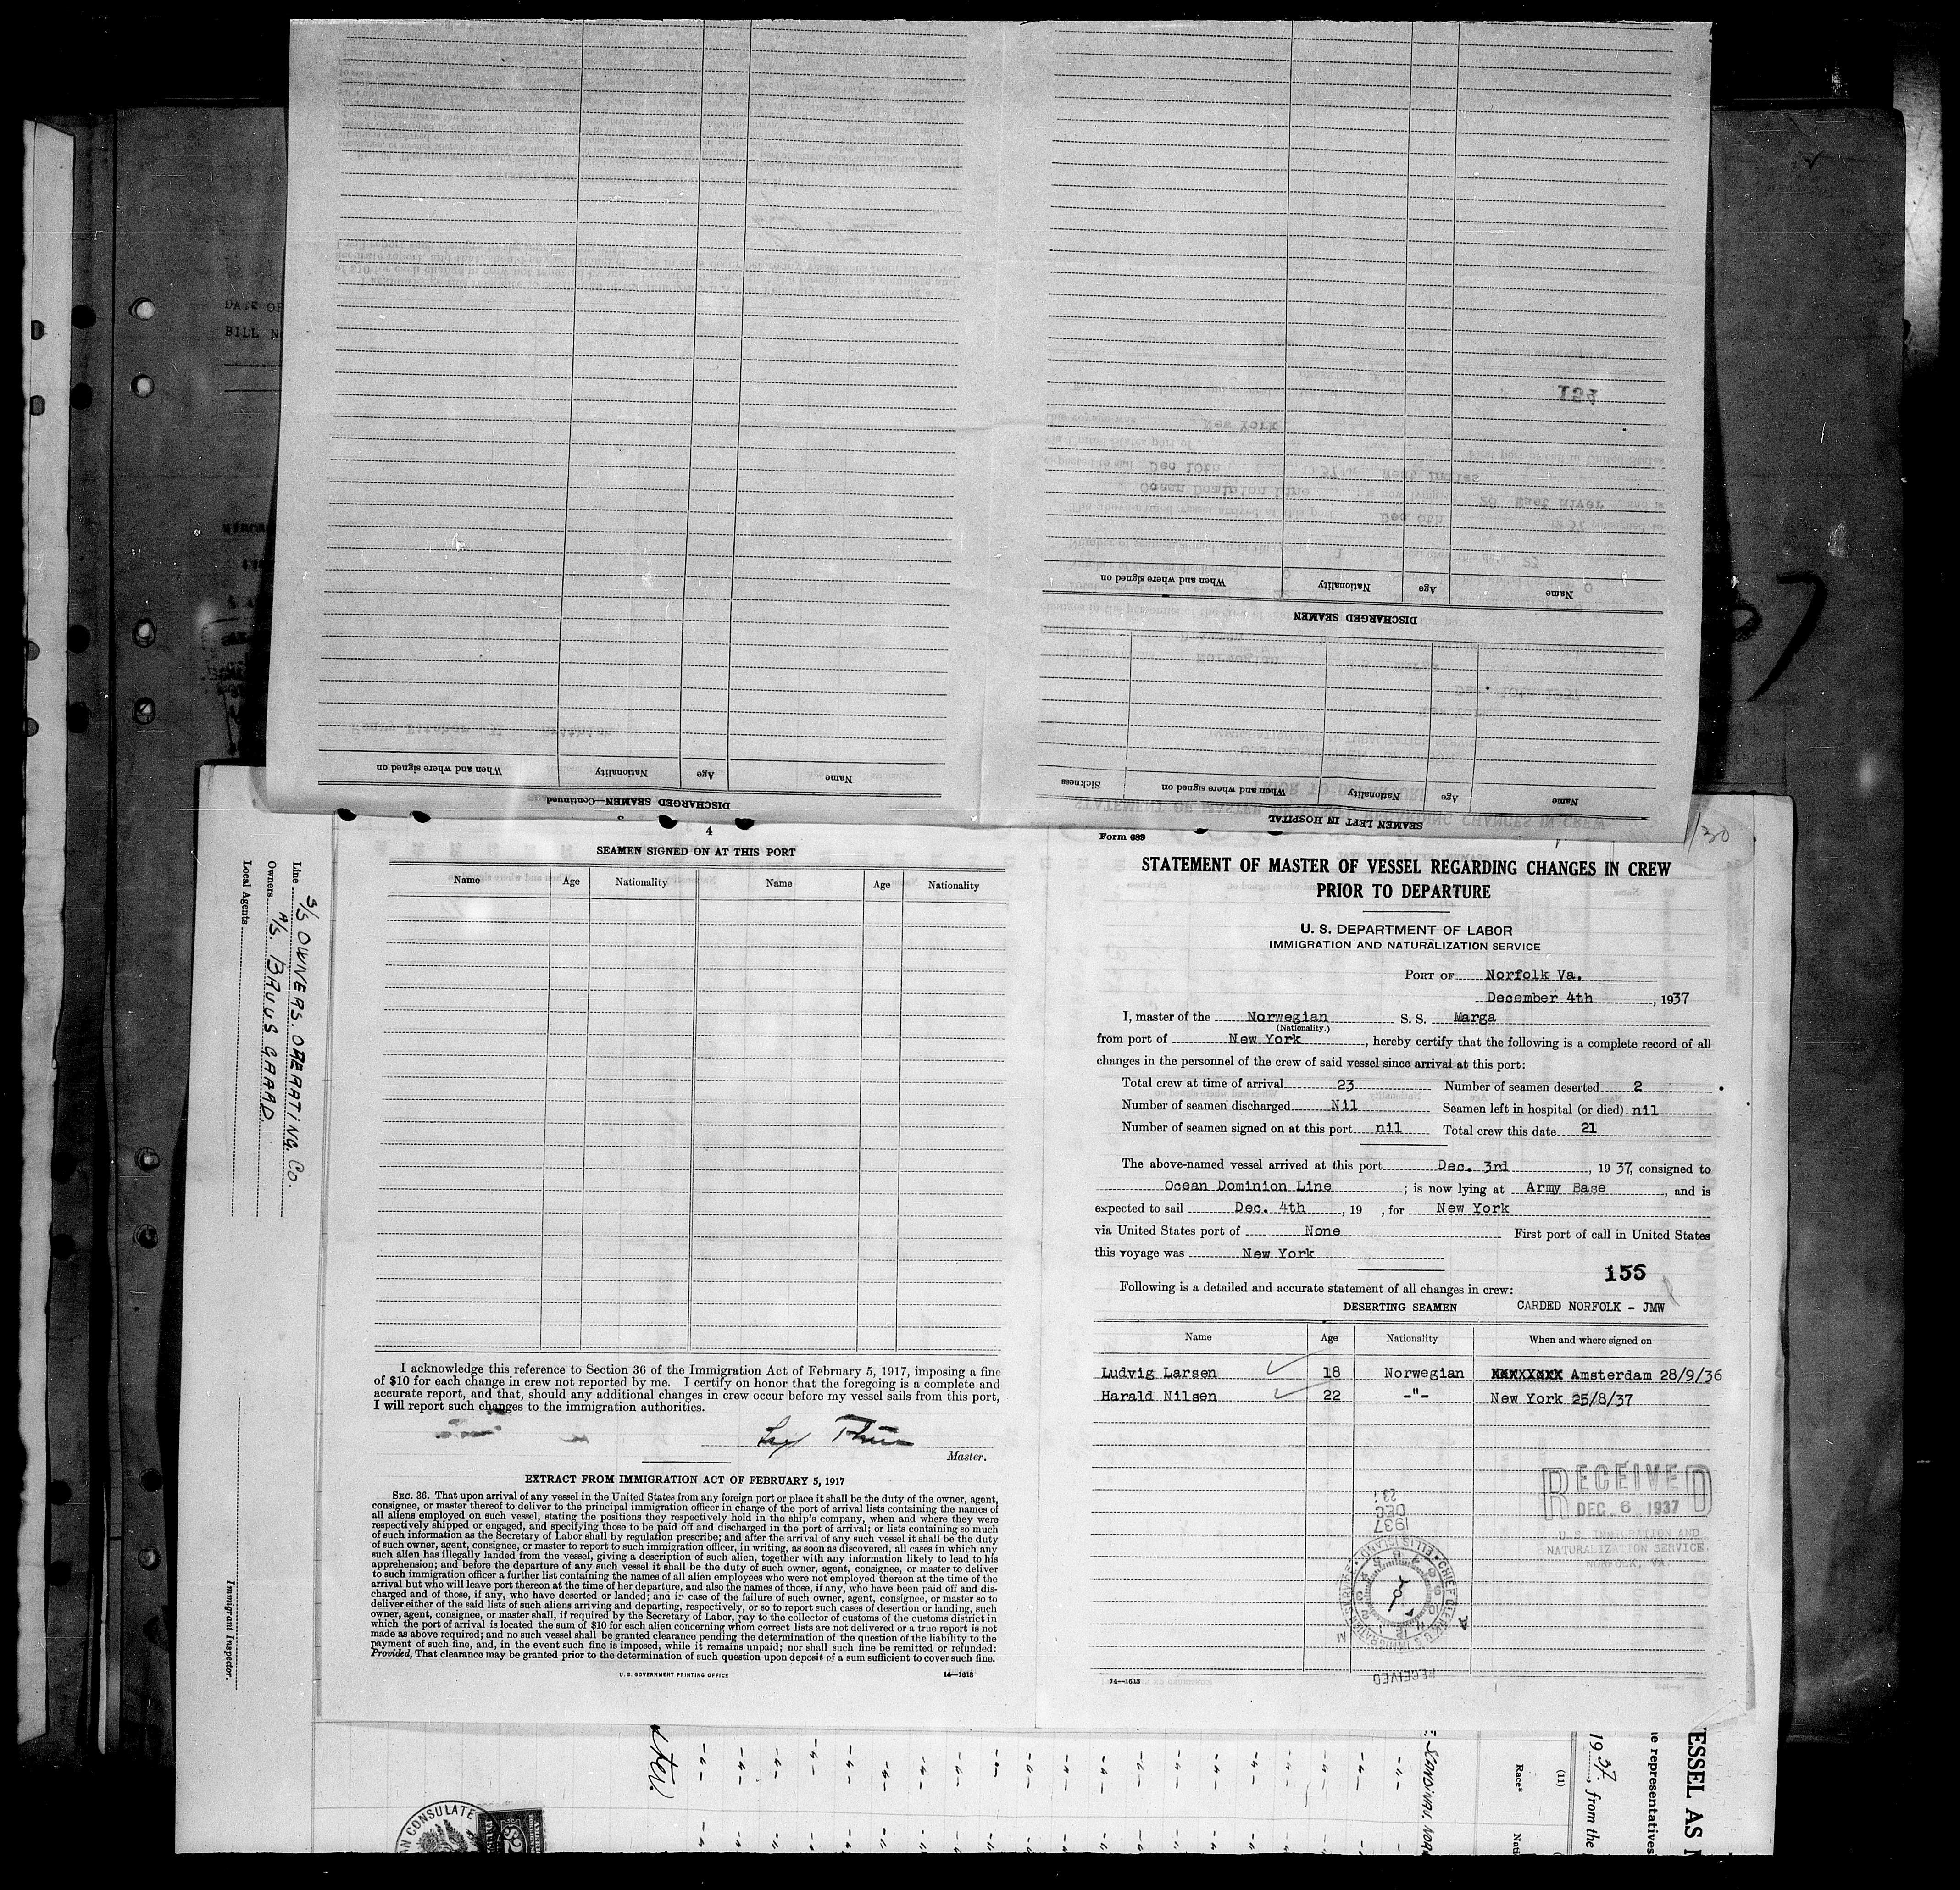 DISCHARGED SEAMEN—Continued
Name Age Nationality When and where signed on
SEAMEN LEFT IN HOSPITAL
Name Age Nationality When and where signed on Sickness
DISCHARGED SEAMEN
Name Age Nationality When and where signed on
DATE OF
BILL N
130
4
SEAMEN SIGNED ON AT THIS PORT
Name Age Nationality Name Age Nationality
I acknowledge this reference to Section 36 of the Immigration Act of February 5, 1917, imposing a fine
of $10 for each change in crew not reported by me. I certify on honor that the foregoing is a complete and
accurate report, and that, should any additional changes in crew occur before my vessel sails from this port,
I will report such changes to the immigration authorities.
Master.
EXTRACT FROM IMMIGRATION ACT OF FEBRUARY 5, 1917
SEC. 36. That upon arrival of any vessel in the United States from any foreign port or place it shall be the duty of the owner, agent,
consignee, or master thereof to deliver to the principal immigration officer in charge of the port of arrival lists containing the names of
all aliens employed on such vessel, stating the positions they respectively hold in the ship's company, when and where they were
respectively shipped or engaged, and specifying those to be paid off and discharged in the port of arrival; or lists containing so much
of such information as the Secretary of Labor shall by regulation prescribe; and after the arrival of any such vessel it shall be the duty
of such owner, agent, consignee, or master to report to such immigration officer, in writing, as soon as discovered, all cases in which any
such alien has illegally landed from the vessel, giving a description of such alien, together with any information likely to lead to his
apprehension; and before the departure of any such vessel it shall be the duty of such owner, agent, consignee, or master to deliver
to such immigration officer a further list containing the names of all alien employees who were not employed thereon at the time of the
arrival but who will leave port thereon at the time of her departure, and also the names of those, if any, who have been paid off and dis-
charged and of those, if any, who have deserted or landed; and in case of the failure of such owner, agent, consignee, or master so to
deliver either of the said lists of such aliens arriving and departing, respectively, or so to report such cases of desertion or landing, such
owner, agent, consignee, or master shall, if required by the Secretary of Labor, pay to the collector of customs of the customs district in
which the port of arrival is located the sum of $10 for each alien concerning whom correct lists are not delivered or a true report is not
made as above required; and no such vessel shall be granted clearance pending the determination of the question of the liability to the
payment of such fine, and, in the event such fine is imposed, while it remains unpaid; nor shall such fine be remitted or refunded:
Provided, That clearance may be granted prior to the determination of such question upon deposit of a sum sufficient to cover such fine.
U. S. GOVERNMENT PRINTING OFFICE 14—1613
Form 689
STATEMENT OF MASTER OF VESSEL REGARDING CHANGES IN CREW
PRIOR TO DEPARTURE
U. S. DEPARTMENT OF LABOR
IMMIGRATION AND NATURALIZATION SERVICE
PORT OF Norfolk Va.
December 4th, 1937
I, master of the Norwegian S. S. Marga
(Nationality.)
from port of New York, hereby certify that the following is a complete record of all
changes in the personnel of the crew of said vessel since arrival at this port:
Total crew at time of arrival 23 Number of seamen deserted 2
Number of seamen discharged Nil Seamen left in hospital (or died) nil
Number of seamen signed on at this port nil Total crew this date 21
The above-named vessel arrived at this port Dec. 3rd, 1937, consigned to
Ocean Dominion Line; is now lying at Army Base, and is
expected to sail Dec. 4th, 19 , for New York
via United States port of None First port of call in United States
this voyage was New York
155
Following is a detailed and accurate statement of all changes in crew:
DESERTING SEAMEN CARDED NORFOLK - JMW
Name Age Nationality When and where signed on
Ludvig Larsen 18 Norwegian Amsterdam 28/9/36
Harald Nilsen 22 -"- New York 25/8/37
RECEIVED
DEC 6 1937
U. S. IMMIGRATION AND
NATURALIZATION SERVICE.
NORFOLK, VA.
1937
DEC
RECEIVED
14—1613
Line S/S OWNERS. OPERATING. Co.
Owners A/S. BRUUSGAARD.
Local Agents
Immigrant Inspector.
ESSEL AS
e representatives
1937, from the
(11)
Race*
SCANDINAV. NOR
N CONSULATE